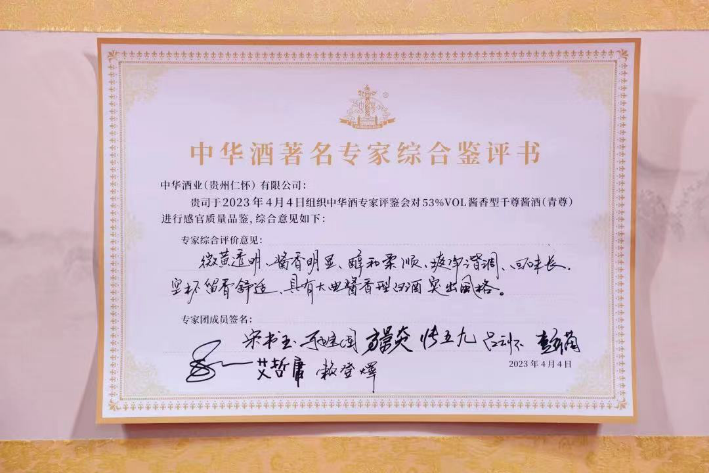 中华酒著名专家综合鉴评书
中华酒业（贵州仁怀）有限公司：
贵司于2023年4月4日组织中华酒专家评鉴会对53%VOL酱香型千尊酱酒（青尊）
进行感官质量品鉴，综合意见如下：
专家综合评价意见：
微黄透明、酱香明显、醇和柔顺、爽净谐调、回味长、
空杯留香舒适、具有大曲酱香型白酒突出风格。
专家团成员签名：
宋书玉
艾哲庸
2023年4月4日